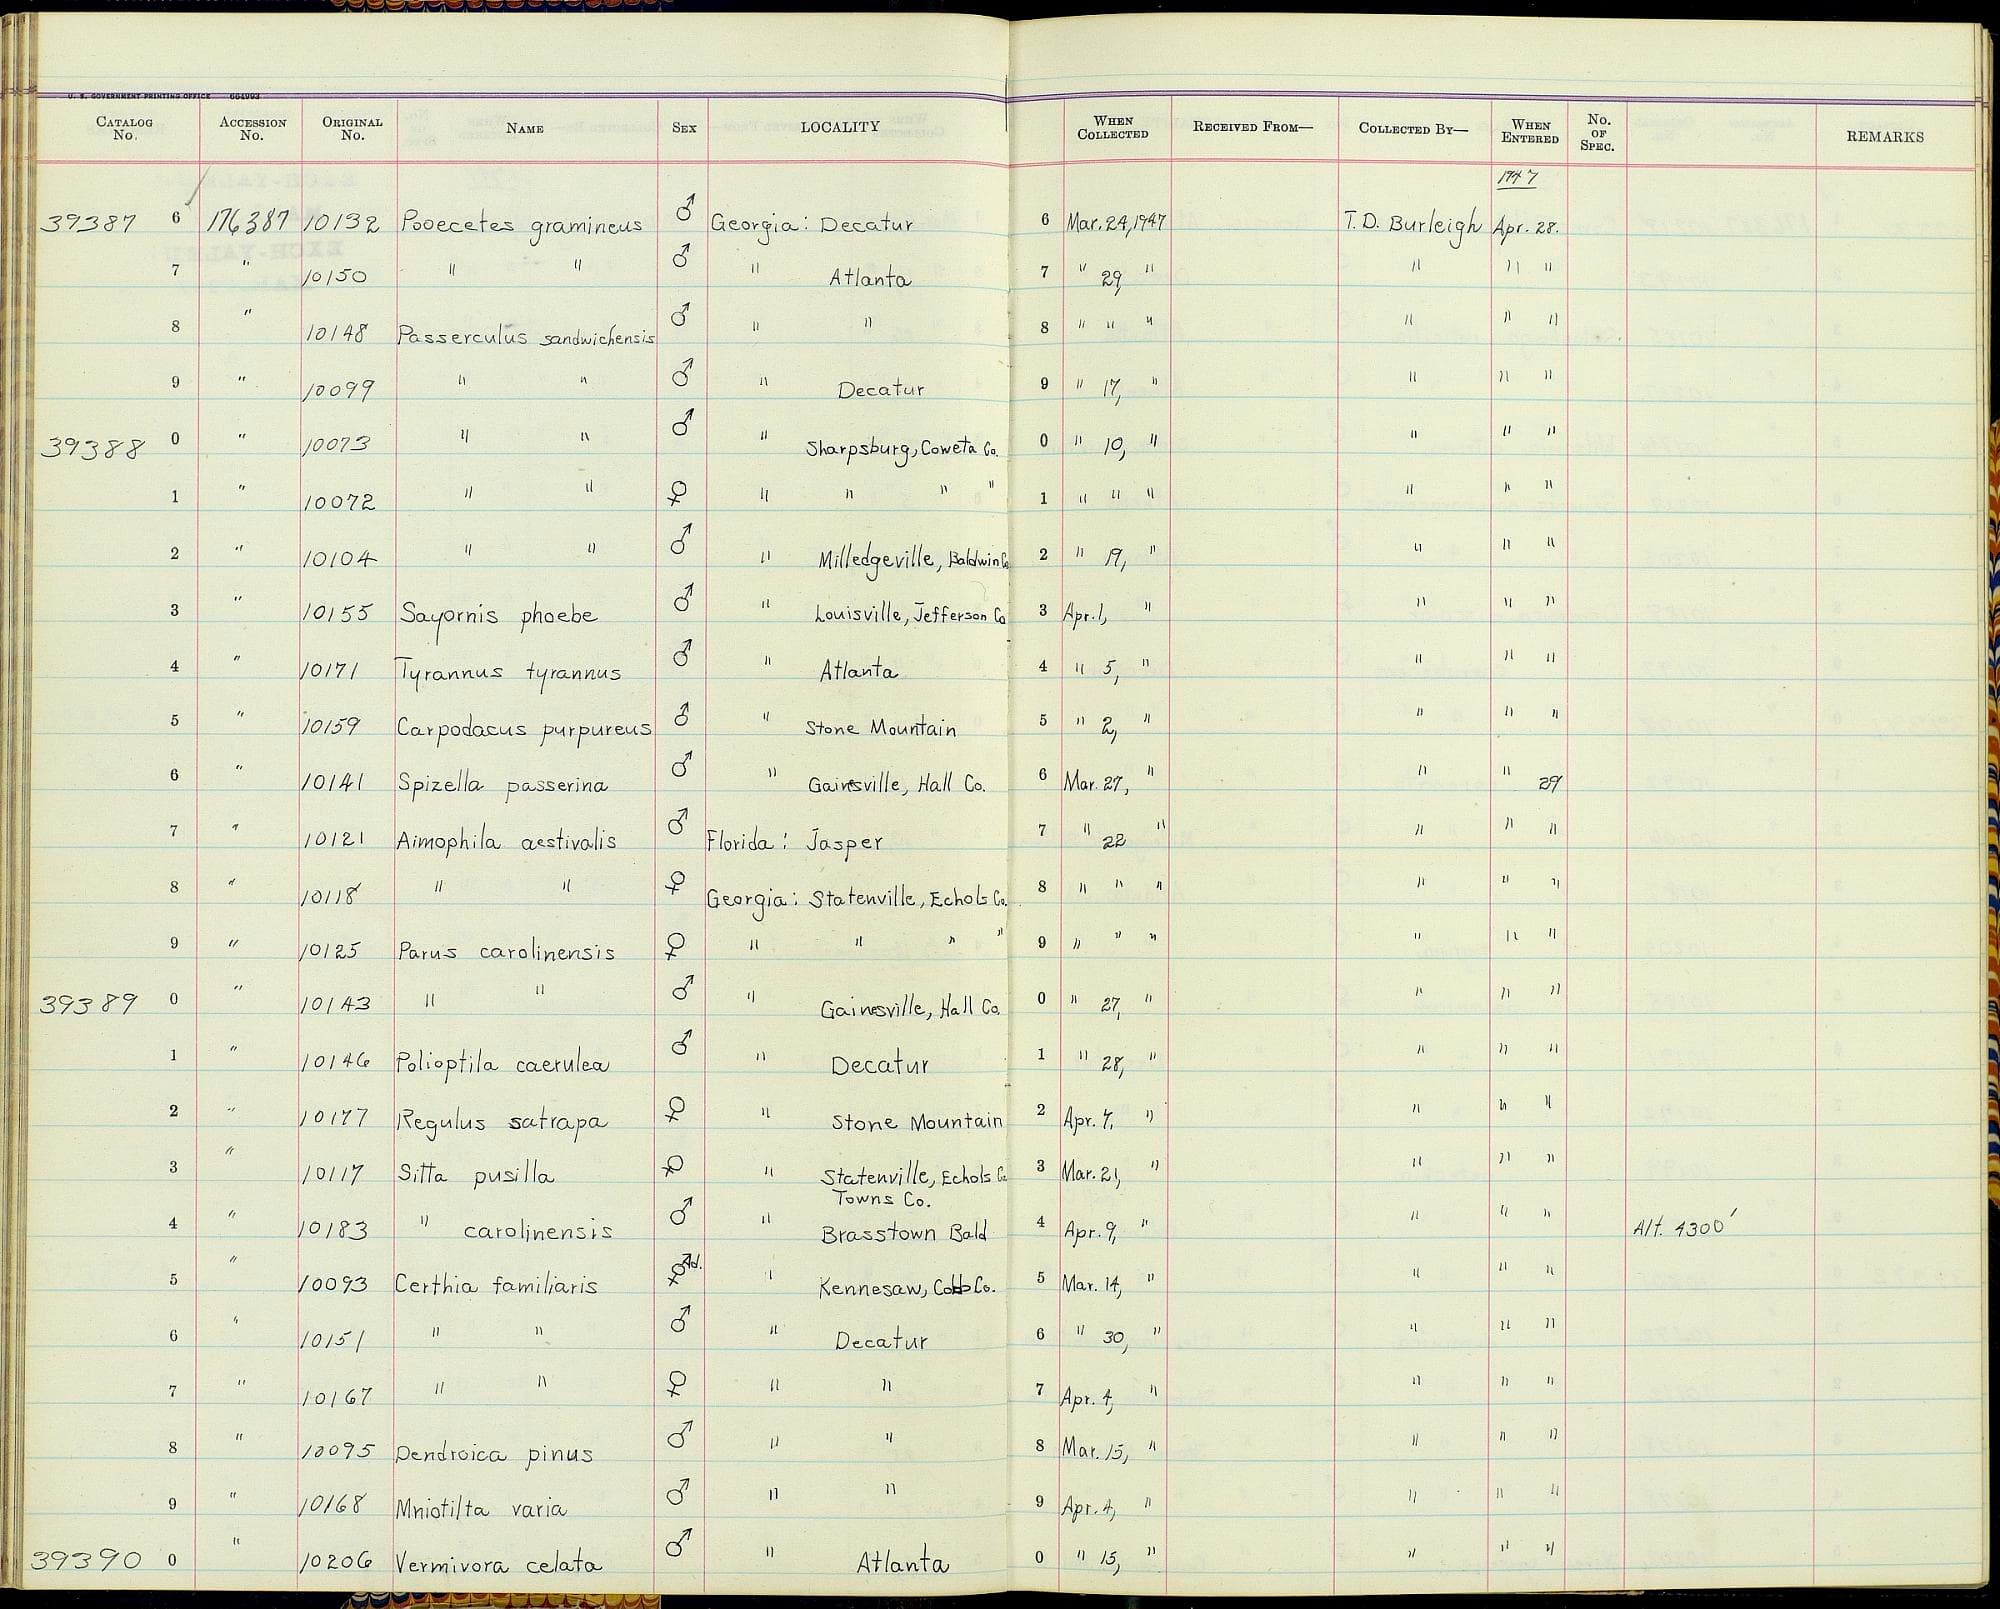 U. S. GOVERNMENT PRINTING OFFICE 664993
CATALOG No. ACCESSION No. ORIGINAL No. NAME SEX LOCALITY WHEN COLLECTED RECEIVED FROM— COLLECTED BY— WHEN ENTERED No. OF SPEC. REMARKS
1947
39387 6 176387 10132 Pooecetes gramineus ♂ Georgia: Decatur 6 Mar. 24, 1947 T. D. Burleigh Apr. 28.
7 " 10150 " " ♂ " Atlanta 7 " 29, " " " "
8 " 10148 Passerculus sandwichensis ♂ " " 8 " " " " " "
9 " 10099 " " ♂ " Decatur 9 " 17, " " " "
39388 0 " 10073 " " ♂ " Sharpsburg, Coweta Co. 0 " 10, " " " "
1 " 10072 " " ♀ " " " " 1 " " " " " "
2 " 10104 " " ♂ " Milledgeville, Baldwin Co 2 " 19, " " " "
3 " 10155 Sayornis phoebe ♂ " Louisville, Jefferson Co 3 Apr. 1, " " " "
4 " 10171 Tyrannus tyrannus ♂ " Atlanta 4 " 5, " " " "
5 " 10159 Carpodacus purpureus ♂ " Stone Mountain 5 " 2, " " " "
6 " 10141 Spizella passerina ♂ " Gainesville, Hall Co. 6 Mar. 27, " " " 29
7 " 10121 Aimophila aestivalis ♂ Florida: Jasper 7 " 22 " " " "
8 " 10118 " " ♀ Georgia: Statenville, Echols Co. 8 " " " " " "
9 " 10125 Parus carolinensis ♀ " " " " 9 " " " " " "
39389 0 " 10143 " " ♂ " Gainesville, Hall Co. 0 " 27, " " " "
1 " 10146 Polioptila caerulea ♂ " Decatur 1 " 28, " " " "
2 " 10177 Regulus satrapa ♀ " Stone Mountain 2 Apr. 7, " " " "
3 " 10117 Sitta pusilla ♀ " Statenville, Echols Co 3 Mar. 21, " " " "
Towns Co.
4 " 10183 " carolinensis ♂ " Brasstown Bald 4 Apr. 9, " " " " Alt. 4300'
5 " 10093 Certhia familiaris ♀ Ad. " Kennesaw, Cobb Co. 5 Mar. 14, " " " "
6 " 10151 " " ♂ " Decatur 6 " 30, " " " "
7 " 10167 " " ♀ " " 7 Apr. 4, " " " "
8 " 10095 Dendroica pinus ♂ " " 8 Mar. 15, " " " "
9 " 10168 Mniotilta varia ♂ " " 9 Apr. 4, " " " "
39390 0 " 10206 Vermivora celata ♂ " Atlanta 0 " 15, " " " "